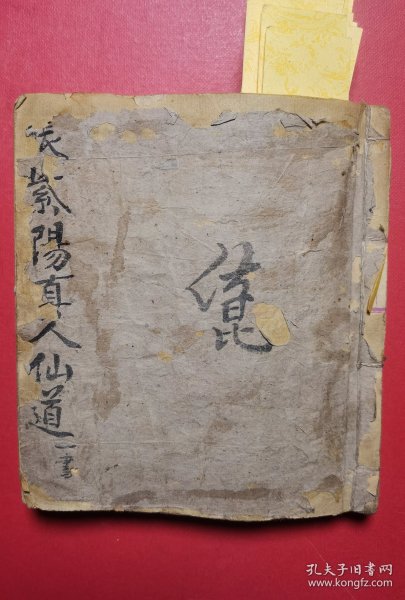 張紫陽真人仙道一書
孔夫子旧书网
www.kongfz.com